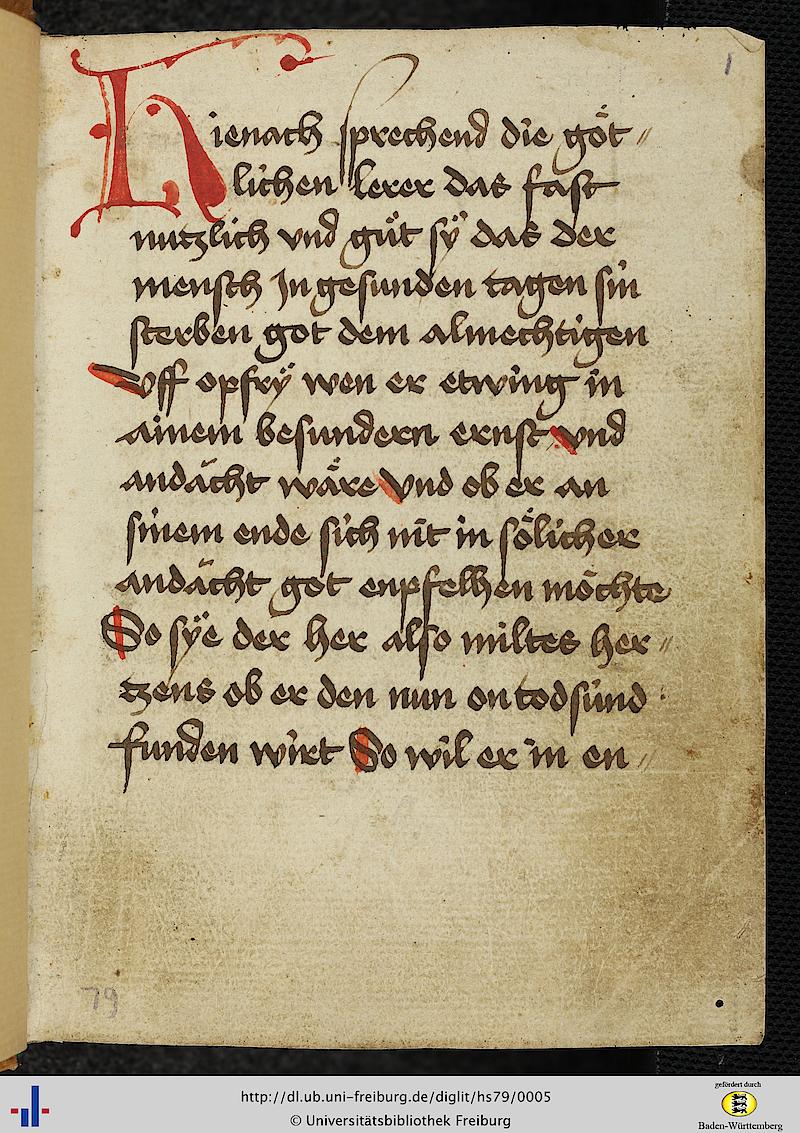 1
Hienach sprechend die göt〃
lichen lerer das fast
nutzlich vnd güt sÿ das der
mensch In gesunden tagen sin
sterben got dem almechtigen
vff opfrÿ wen er etwing in
ainem besundern ernst vnd
andächt wäre vnd ob er an
sinem ende sich nit in sölicher
andächt got enpfelhen möchte
So sÿe der her also miltes her〃
tzens ob er den nun on todsünd
funden wirt So wil er in en〃
79
http://dl.ub.uni-freiburg.de/diglit/hs79/0005
© Universitätsbibliothek Freiburg
gefördert durch
Baden-Württemberg